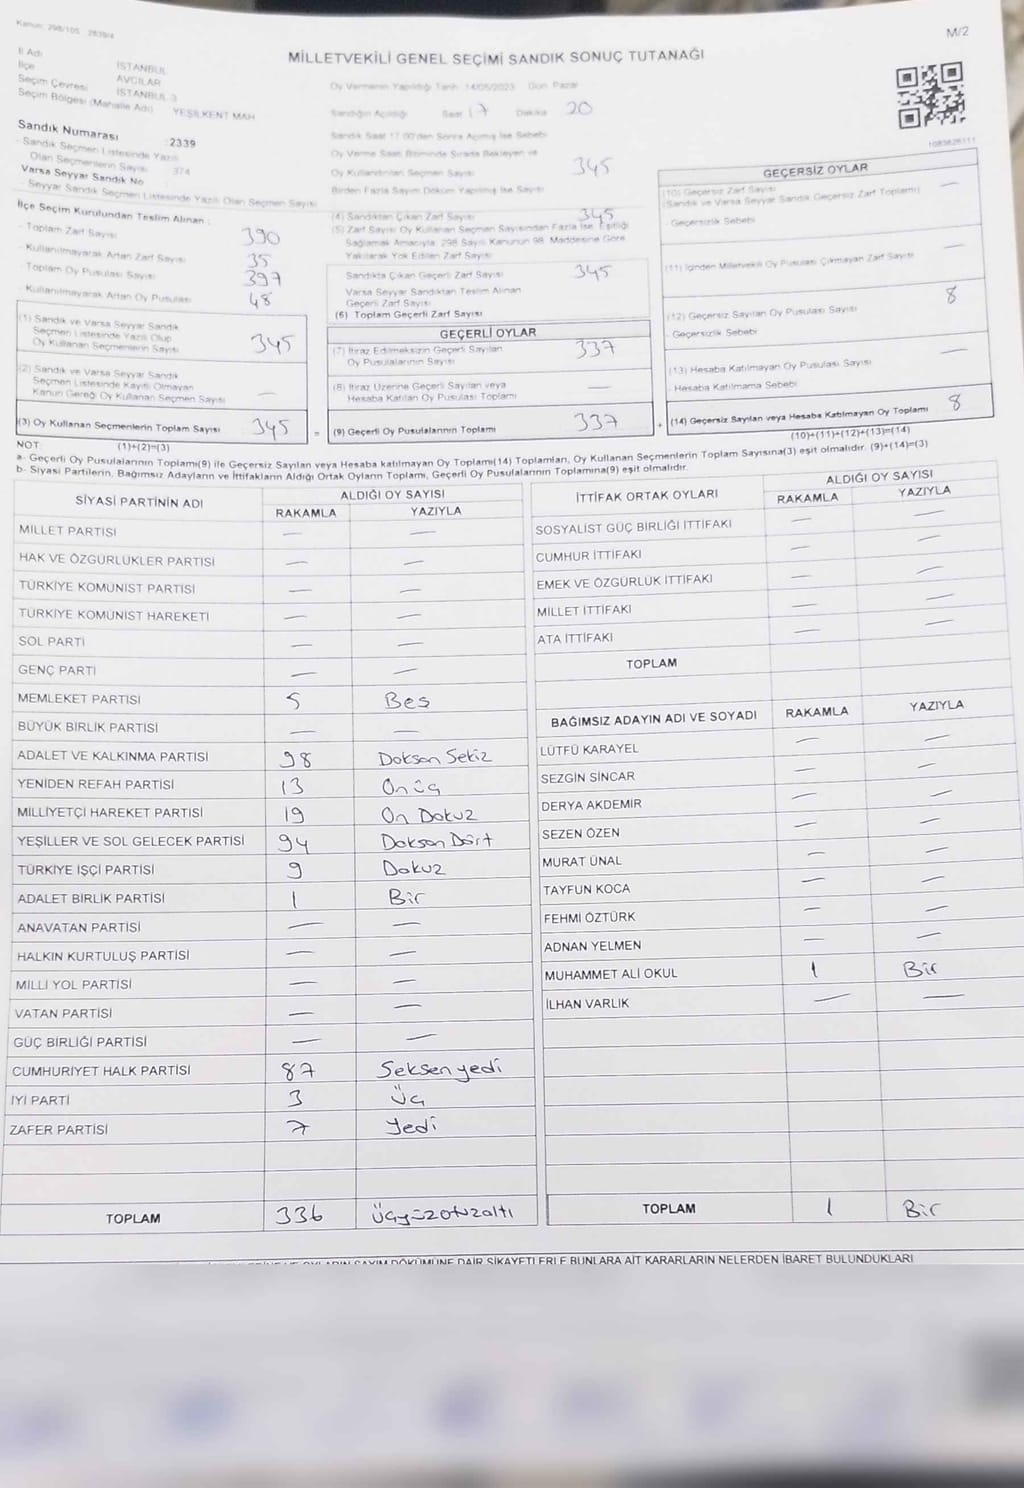 Kanun: 298/105 2839/4
M/2
MİLLETVEKİLİ GENEL SEÇİMİ SANDIK SONUÇ TUTANAĞI
İl Adı İSTANBUL
İlçe AVCILAR
Seçim Çevresi İSTANBUL 3
Seçim Bölgesi (Mahalle Adı) YEŞİLKENT MAH
Sandık Numarası :2339
- Sandık Seçmen Listesinde Yazılı
Olan Seçmenlerin Sayısı 374
Varsa Seyyar Sandık No
- Seyyar Sandık Seçmen Listesinde Yazılı Olan Seçmen Sayısı
İlçe Seçim Kurulundan Teslim Alınan :
- Toplam Zarf Sayısı 390
- Kullanılmayarak Artan Zarf Sayısı 35
- Toplam Oy Pusulası Sayısı 397
- Kullanılmayarak Artan Oy Pusulası 48
(1) Sandık ve Varsa Seyyar Sandık
Seçmen Listesinde Yazılı Olup
Oy Kullanan Seçmenlerin Sayısı 345
(2) Sandık ve Varsa Seyyar Sandık
Seçmen Listesinde Kayıtlı Olmayan
Kanun Gereği Oy Kullanan Seçmen Sayısı —
(3) Oy Kullanan Seçmenlerin Toplam Sayısı 345
(1)+(2)=(3)
Oy Vermenin Yapıldığı Tarih 14/05/2023 Gün Pazar
Sandığın Açıldığı Saat 17 Dakika 20
Sandık Saat 17.00'den Sonra Açılmış İse Sebebi
Oy Verme Saati Bitiminde Sırada Bekleyen ve
Oy Kullandırılan Seçmen Sayısı 345
Birden Fazla Sayım Döküm Yapılmış İse Sayısı
(4) Sandıktan Çıkan Zarf Sayısı 345
(5) Zarf Sayısı Oy Kullanan Seçmen Sayısından Fazla İse, Eşitliği
Sağlamak Amacıyla, 298 Sayılı Kanunun 98. Maddesine Göre
Yakılarak Yok Edilen Zarf Sayısı
Sandıkta Çıkan Geçerli Zarf Sayısı 345
Varsa Seyyar Sandıktan Teslim Alınan
Geçerli Zarf Sayısı
(6) Toplam Geçerli Zarf Sayısı
GEÇERLİ OYLAR
(7) İtiraz Edilmeksizin Geçerli Sayılan
Oy Pusulalarının Sayısı 337
(8) İtiraz Üzerine Geçerli Sayılan veya
Hesaba Katılan Oy Pusulası Toplamı —
= (9) Geçerli Oy Pusulalarının Toplamı 337 +
1083626111
GEÇERSİZ OYLAR
(10) Geçersiz Zarf Sayısı
(Sandık ve Varsa Seyyar Sandık Geçersiz Zarf Toplamı) —
- Geçersizlik Sebebi
(11) İçinden Milletvekili Oy Pusulası Çıkmayan Zarf Sayısı —
(12) Geçersiz Sayılan Oy Pusulası Sayısı 8
- Geçersizlik Sebebi
(13) Hesaba Katılmayan Oy Pusulası Sayısı —
- Hesaba Katılmama Sebebi
(14) Geçersiz Sayılan veya Hesaba Katılmayan Oy Toplamı 8
(10)+(11)+(12)+(13)=(14)
NOT:
a- Geçerli Oy Pusulalarının Toplamı(9) ile Geçersiz Sayılan veya Hesaba katılmayan Oy Toplamı(14) Toplamları, Oy Kullanan Seçmenlerin Toplam Sayısına(3) eşit olmalıdır. (9)+(14)=(3)
b- Siyasi Partilerin, Bağımsız Adayların ve İttifakların Aldığı Ortak Oyların Toplamı, Geçerli Oy Pusulalarının Toplamına(9) eşit olmalıdır.
SİYASİ PARTİNİN ADI ALDIĞI OY SAYISI
RAKAMLA YAZIYLA
MİLLET PARTİSİ — —
HAK VE ÖZGÜRLÜKLER PARTİSİ — —
TÜRKİYE KOMÜNİST PARTİSİ — —
TÜRKİYE KOMÜNİST HAREKETİ — —
SOL PARTİ — —
GENÇ PARTİ — —
MEMLEKET PARTİSİ 5 Beş
BÜYÜK BİRLİK PARTİSİ — —
ADALET VE KALKINMA PARTİSİ 98 Doksan Sekiz
YENİDEN REFAH PARTİSİ 13 On üç
MİLLİYETÇİ HAREKET PARTİSİ 19 On Dokuz
YEŞİLLER VE SOL GELECEK PARTİSİ 94 Doksan Dört
TÜRKİYE İŞÇİ PARTİSİ 9 Dokuz
ADALET BİRLİK PARTİSİ 1 Bir
ANAVATAN PARTİSİ — —
HALKIN KURTULUŞ PARTİSİ — —
MİLLİ YOL PARTİSİ — —
VATAN PARTİSİ — —
GÜÇ BİRLİĞİ PARTİSİ — —
CUMHURİYET HALK PARTİSİ 87 Seksen yedi
İYİ PARTİ 3 Üç
ZAFER PARTİSİ 7 Yedi
TOPLAM 336 Üçyüzotuzaltı
İTTİFAK ORTAK OYLARI ALDIĞI OY SAYISI
RAKAMLA YAZIYLA
SOSYALİST GÜÇ BİRLİĞİ İTTİFAKI — —
CUMHUR İTTİFAKI — —
EMEK VE ÖZGÜRLÜK İTTİFAKI — —
MİLLET İTTİFAKI — —
ATA İTTİFAKI — —
TOPLAM
BAĞIMSIZ ADAYIN ADI VE SOYADI RAKAMLA YAZIYLA
LÜTFÜ KARAYEL — —
SEZGİN SİNCAR — —
DERYA AKDEMİR — —
SEZEN ÖZEN — —
MURAT ÜNAL — —
TAYFUN KOCA — —
FEHMİ ÖZTÜRK — —
ADNAN YELMEN — —
MUHAMMET ALİ OKUL 1 Bir
İLHAN VARLIK — —
TOPLAM 1 Bir
SAYIM DÖKÜMÜNE DAİR ŞİKAYETLERLE BUNLARA AİT KARARLARIN NELERDEN İBARET BULUNDUKLARI